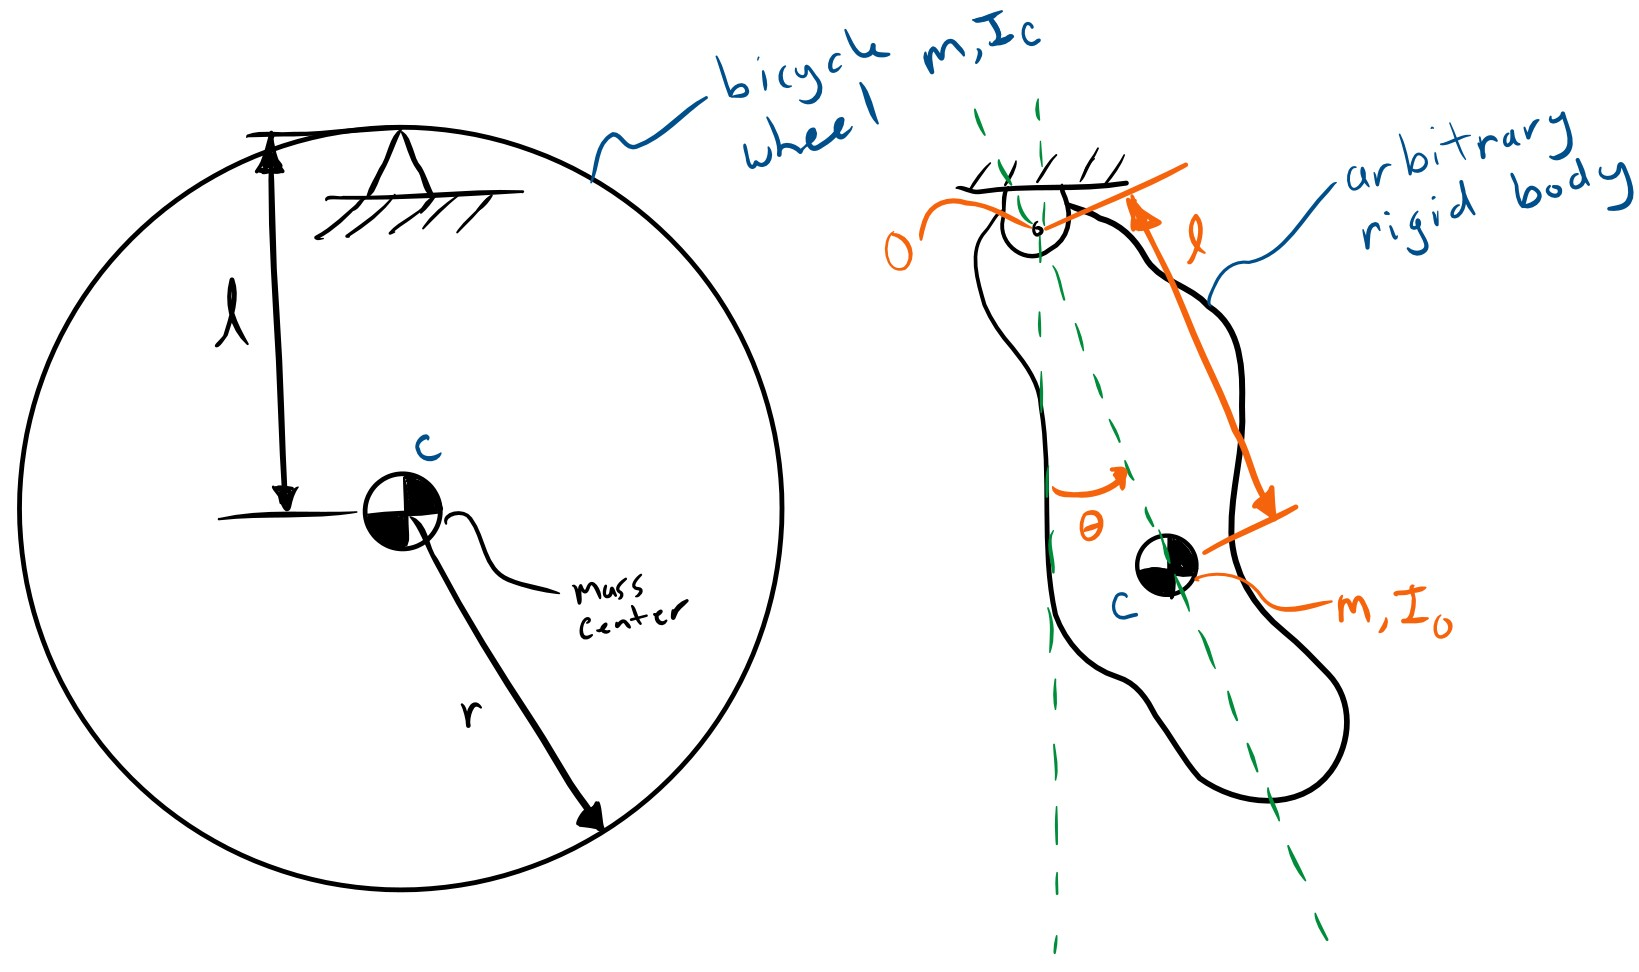 bicycle m, Ic
wheel
l
C
mass
center
r
arbitrary
rigid body
O
l
θ
C
m, Io